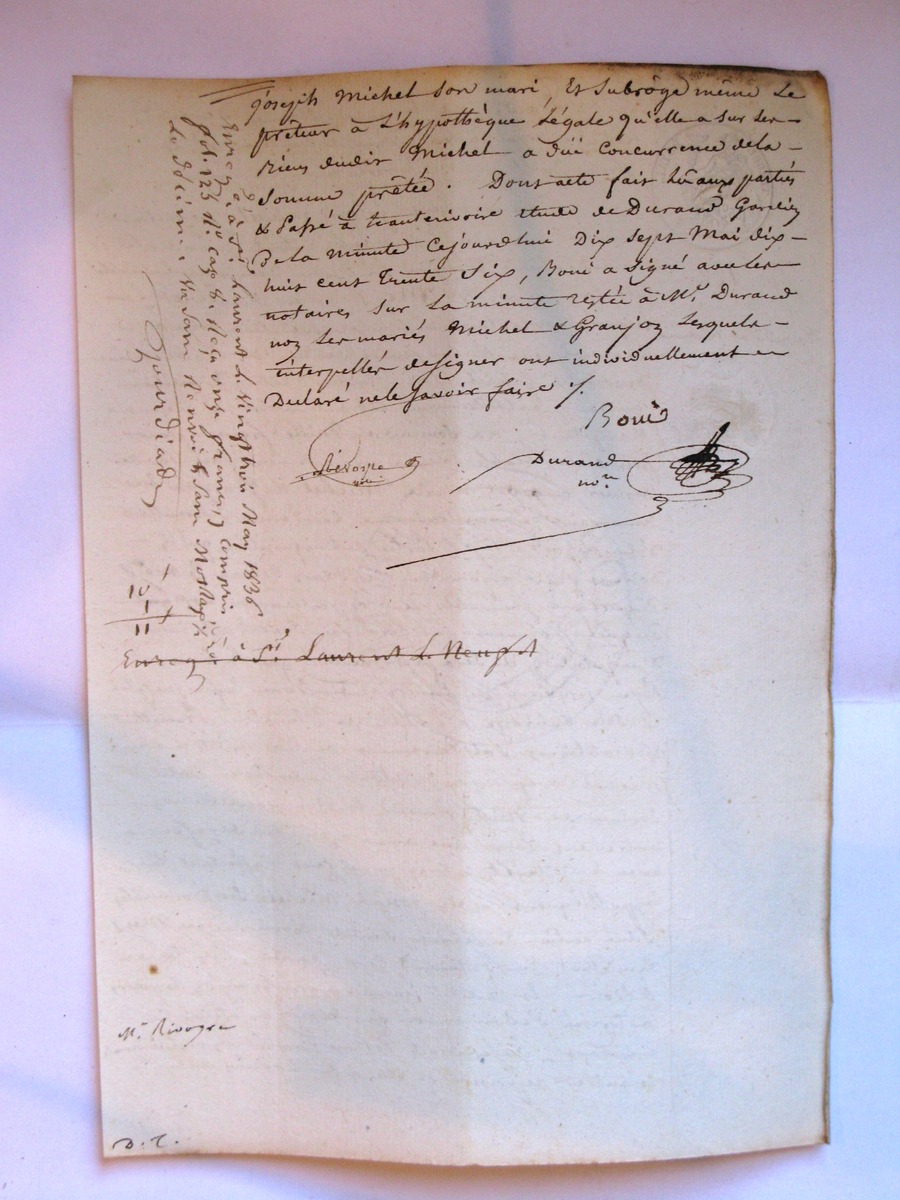 joseph Michel son mari, Et Subrôge même Le
prêteur à L'hypothèque Légale qu'elle a sur les
Biens dudit Michel a düe Concurrence de la
Somme prêtée. Dont acte fait Lû aux partiés
& Passé à hauterivoire étude de Durand Gardien
De la minute Cejourdhui Dix sept Mai dix-
huit cent Trente Six, Boué a Signé avec les
notaires Sur La minute restée à Me. Durand
non Les mariés Michel & Granjon Lesquels
interpellés de Signer ont individuellement
Déclaré ne le Savoir faire ./.
Boué
Durand
nore
Enregé à St. Laurent Le Vingt trois May 1836
fol. 123 Ro. Cas 5. Reçu onze francs compris
Le Décime
Gourdiad
10
1
11
Enregé à St. Laurent Le Neuf
Me. Rivoyre
D. T.